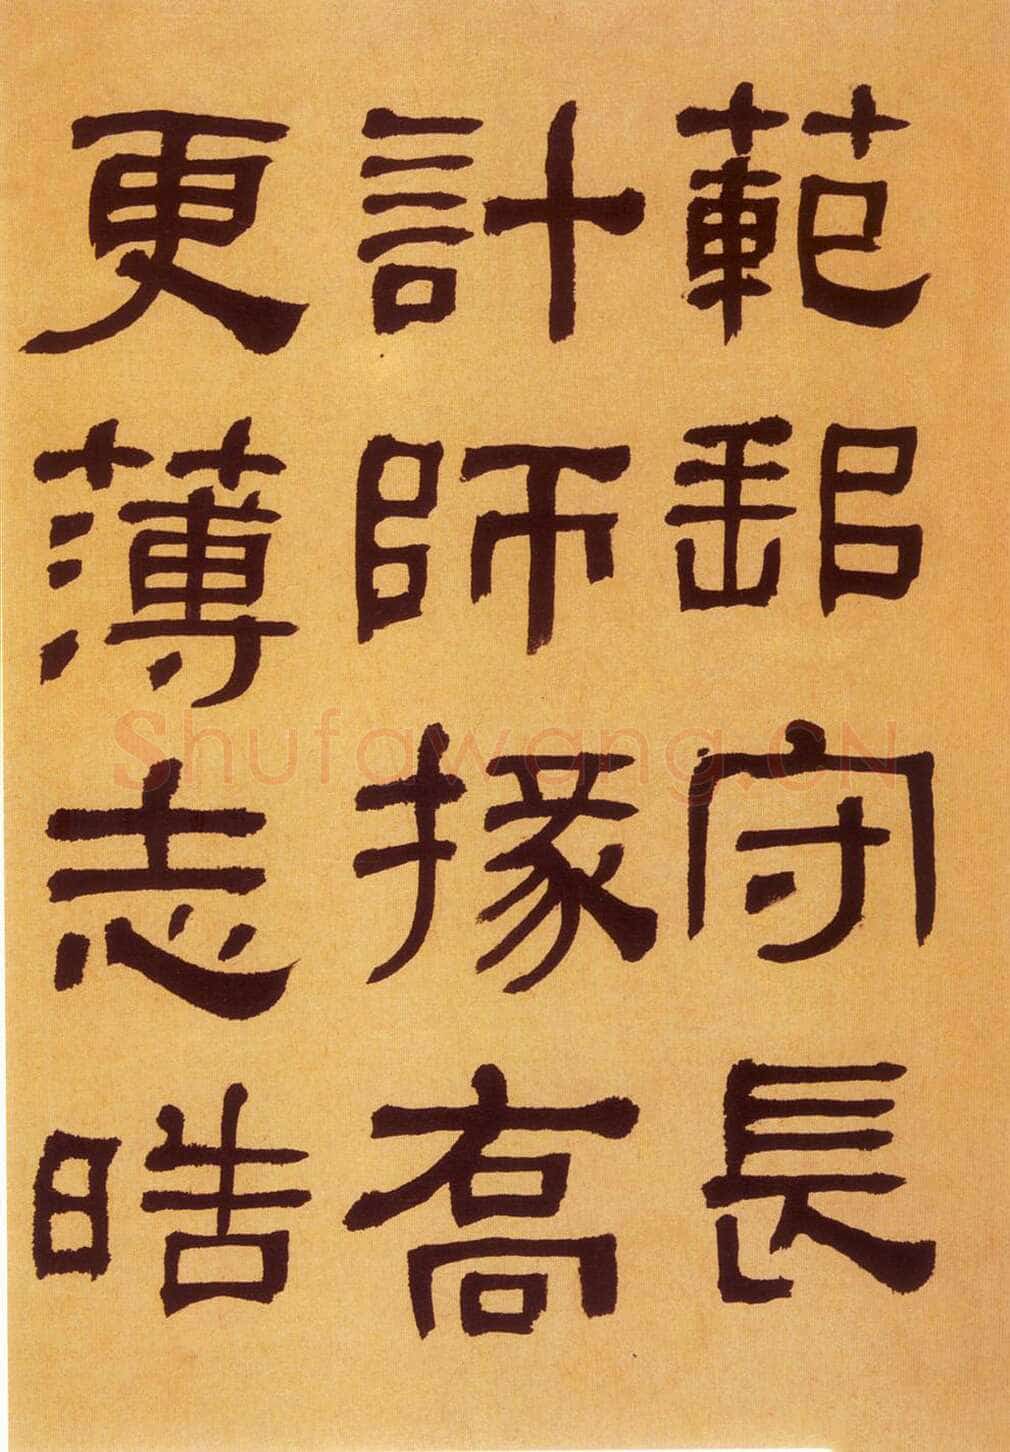 範郵守長
計師掾喬
更薄志晧
Shufawang.CN